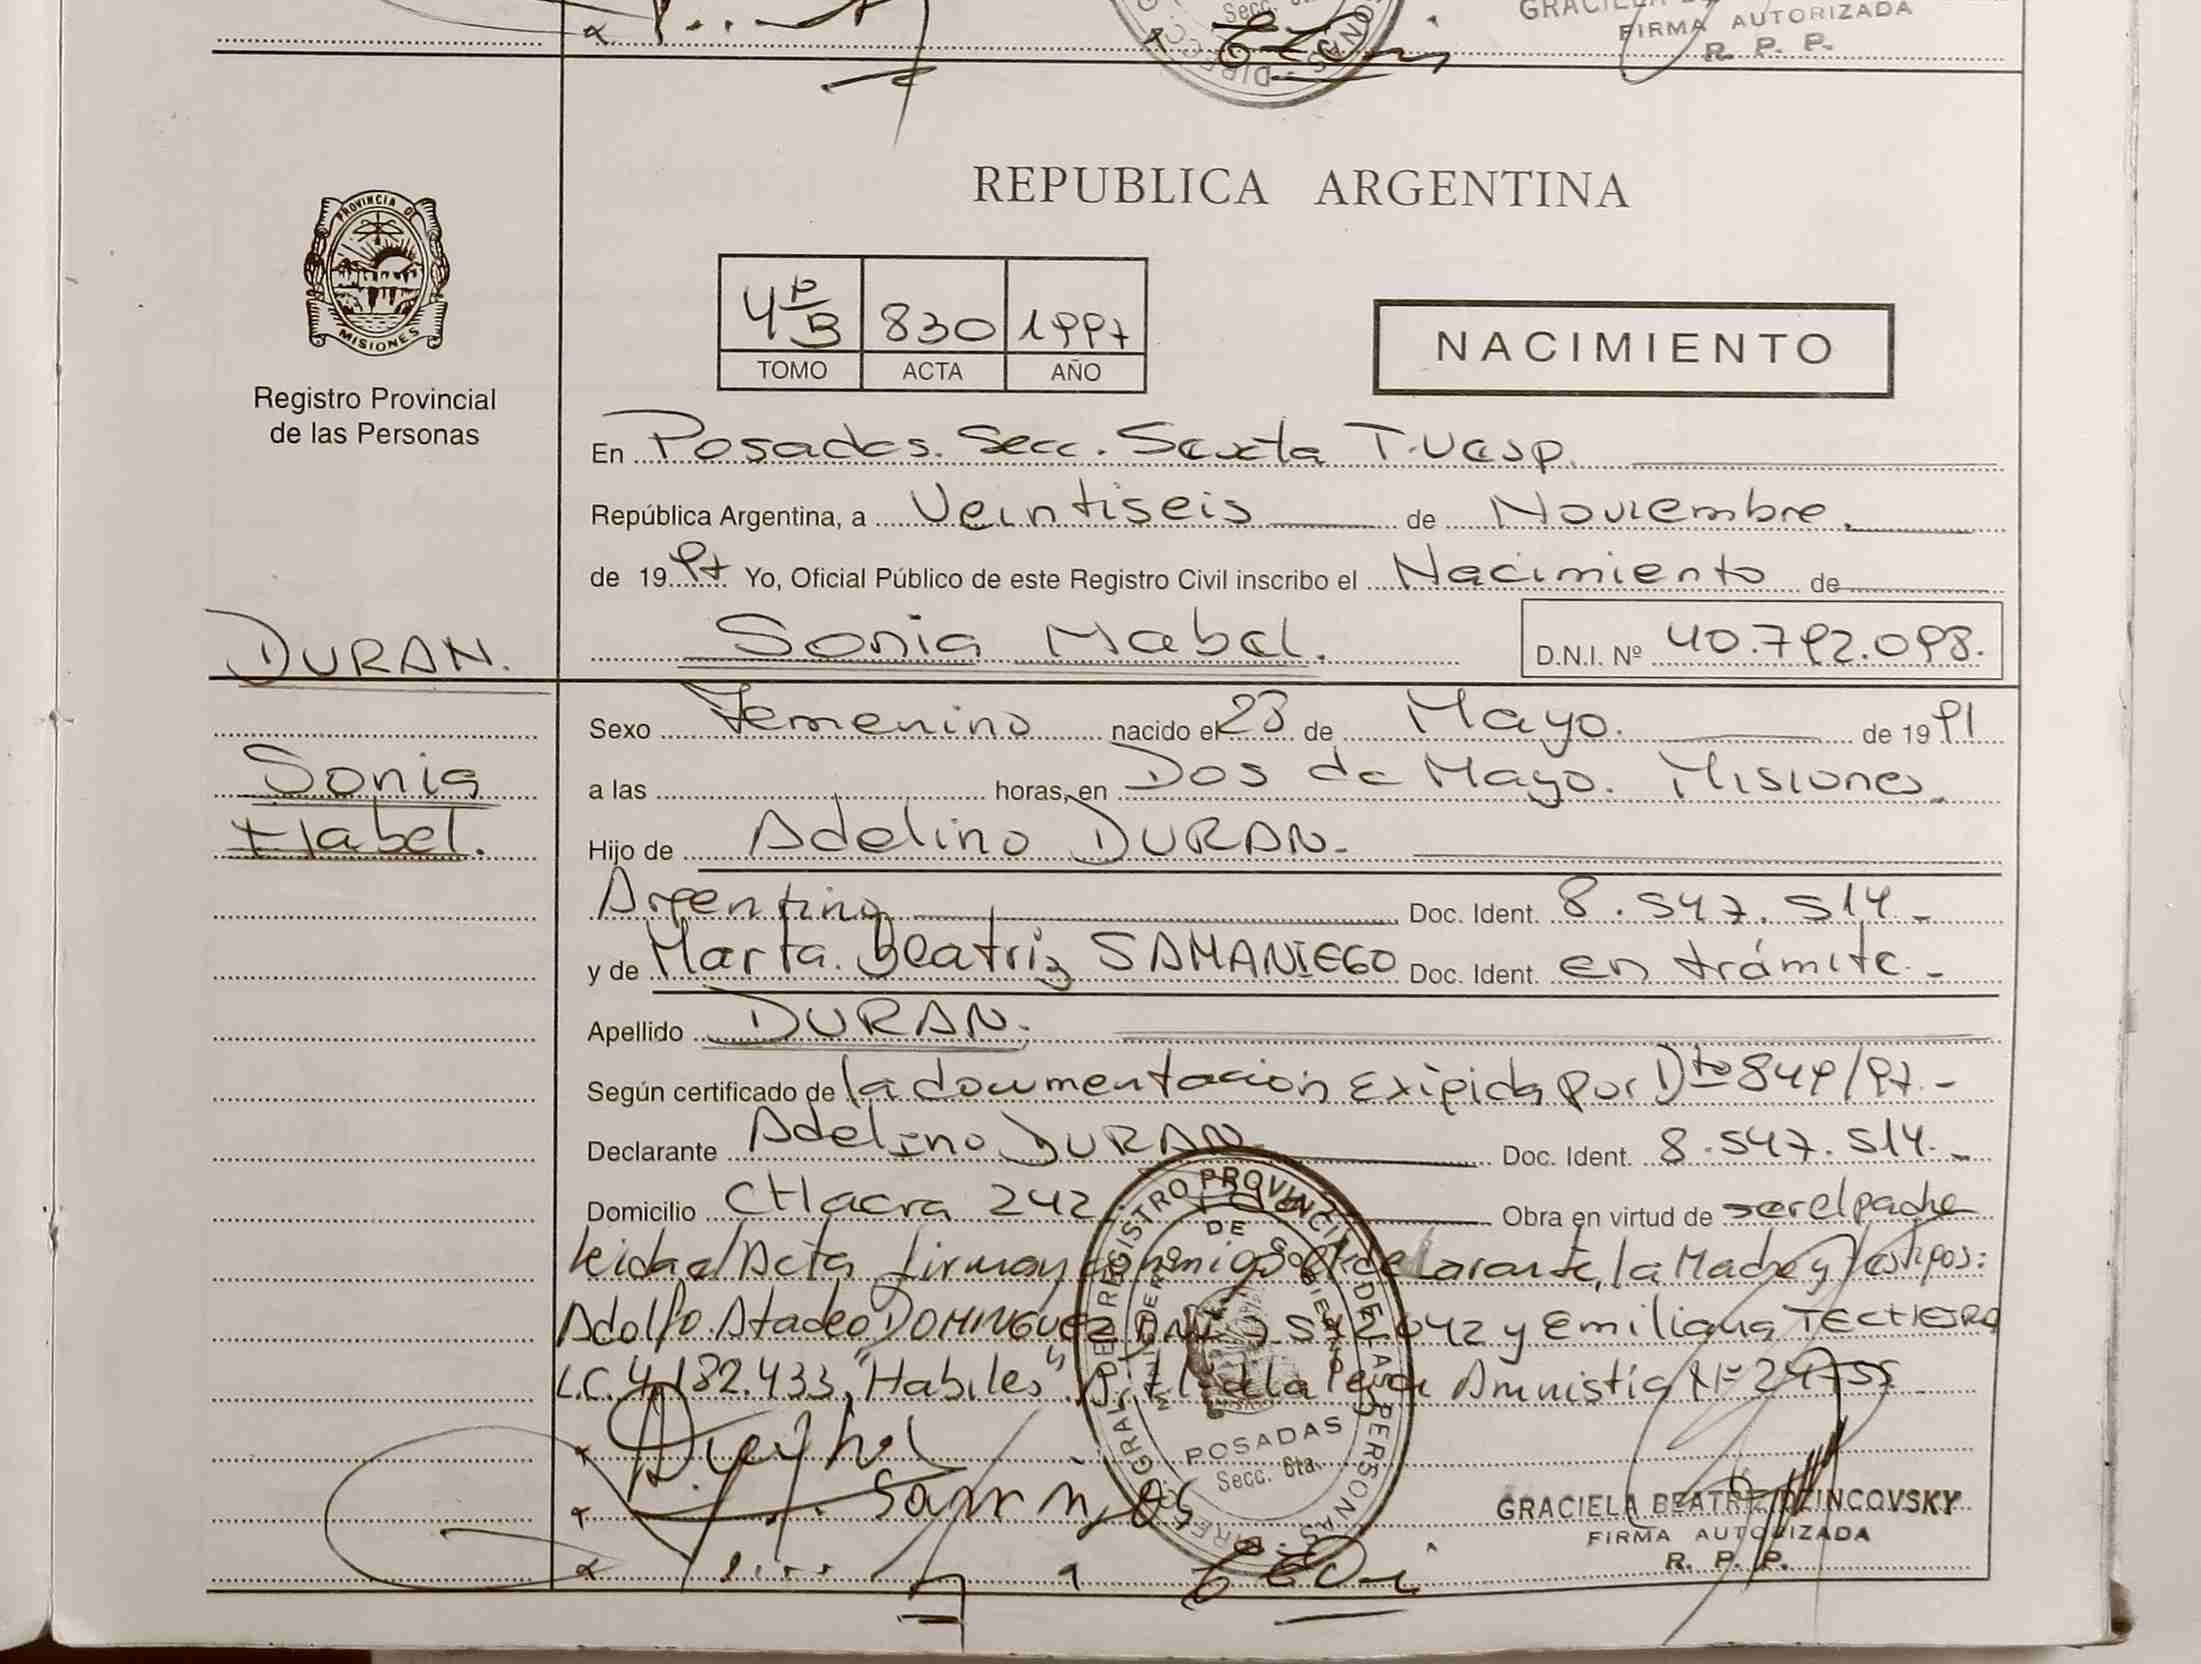 GRACIELA
FIRMA AUTORIZADA
R. P. P.
REPUBLICA ARGENTINA
PROVINCIA DE
MISIONES
Registro Provincial
de las Personas
4 P/B 830 1997
TOMO ACTA AÑO
NACIMIENTO
En Posadas. Secc. Sexta T. Vesp.
República Argentina, a Veintiseis de Noviembre.
de 1997 Yo, Oficial Público de este Registro Civil inscribo el Nacimiento de
DURAN. Sonia Mabel. D.N.I. Nº 40.792.098.
Sexo Femenino nacido el 23 de Mayo. de 1991
Sonia
a las horas, en Dos de Mayo. Misiones.
Mabel.
Hijo de Adelino DURAN.
Argentino Doc. Ident. 8.547.514.
y de Marta Beatriz SAMANIEGO Doc. Ident. en trámite.
Apellido DURAN.
Según certificado de la documentación Exigida por Dto 849/97.
Declarante Adelino DURAN Doc. Ident. 8.547.514.
Domicilio CHacra 242 Obra en virtud de ser el padre
leida el Acta firman conmigo el declarante, la Madre y testigos:
Adolfo Atadeo DOMINGUEZ DNI 042 y Emiliana
L.C. 4.182.433, "Habiles". de la Ley de Amnistía Nº 24755
DIRECC. GRAL. DEL REGISTRO PROVINCIAL DE LAS PERSONAS
POSADAS
Secc. 6ta.
GRACIELA BEATRIZ DZINCOVSKY
FIRMA AUTORIZADA
R. P. P.